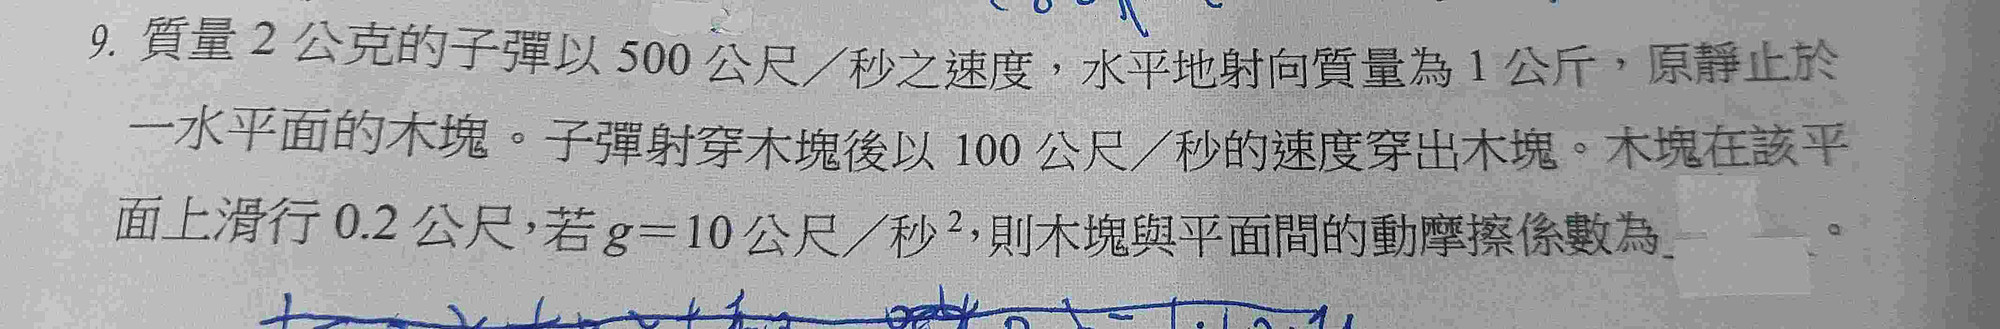 9. 質量 2 公克的子彈以 500 公尺／秒之速度，水平地射向質量為 1 公斤，原靜止於
一水平面的木塊。子彈射穿木塊後以 100 公尺／秒的速度穿出木塊。木塊在該平
面上滑行 0.2 公尺，若 g＝10 公尺／秒²，則木塊與平面間的動摩擦係數為＿＿。